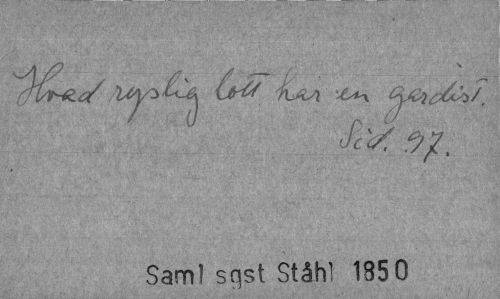 Hvad ryslig lott har en gardist.
Sid. 97.
Saml sgst Ståhl 1850